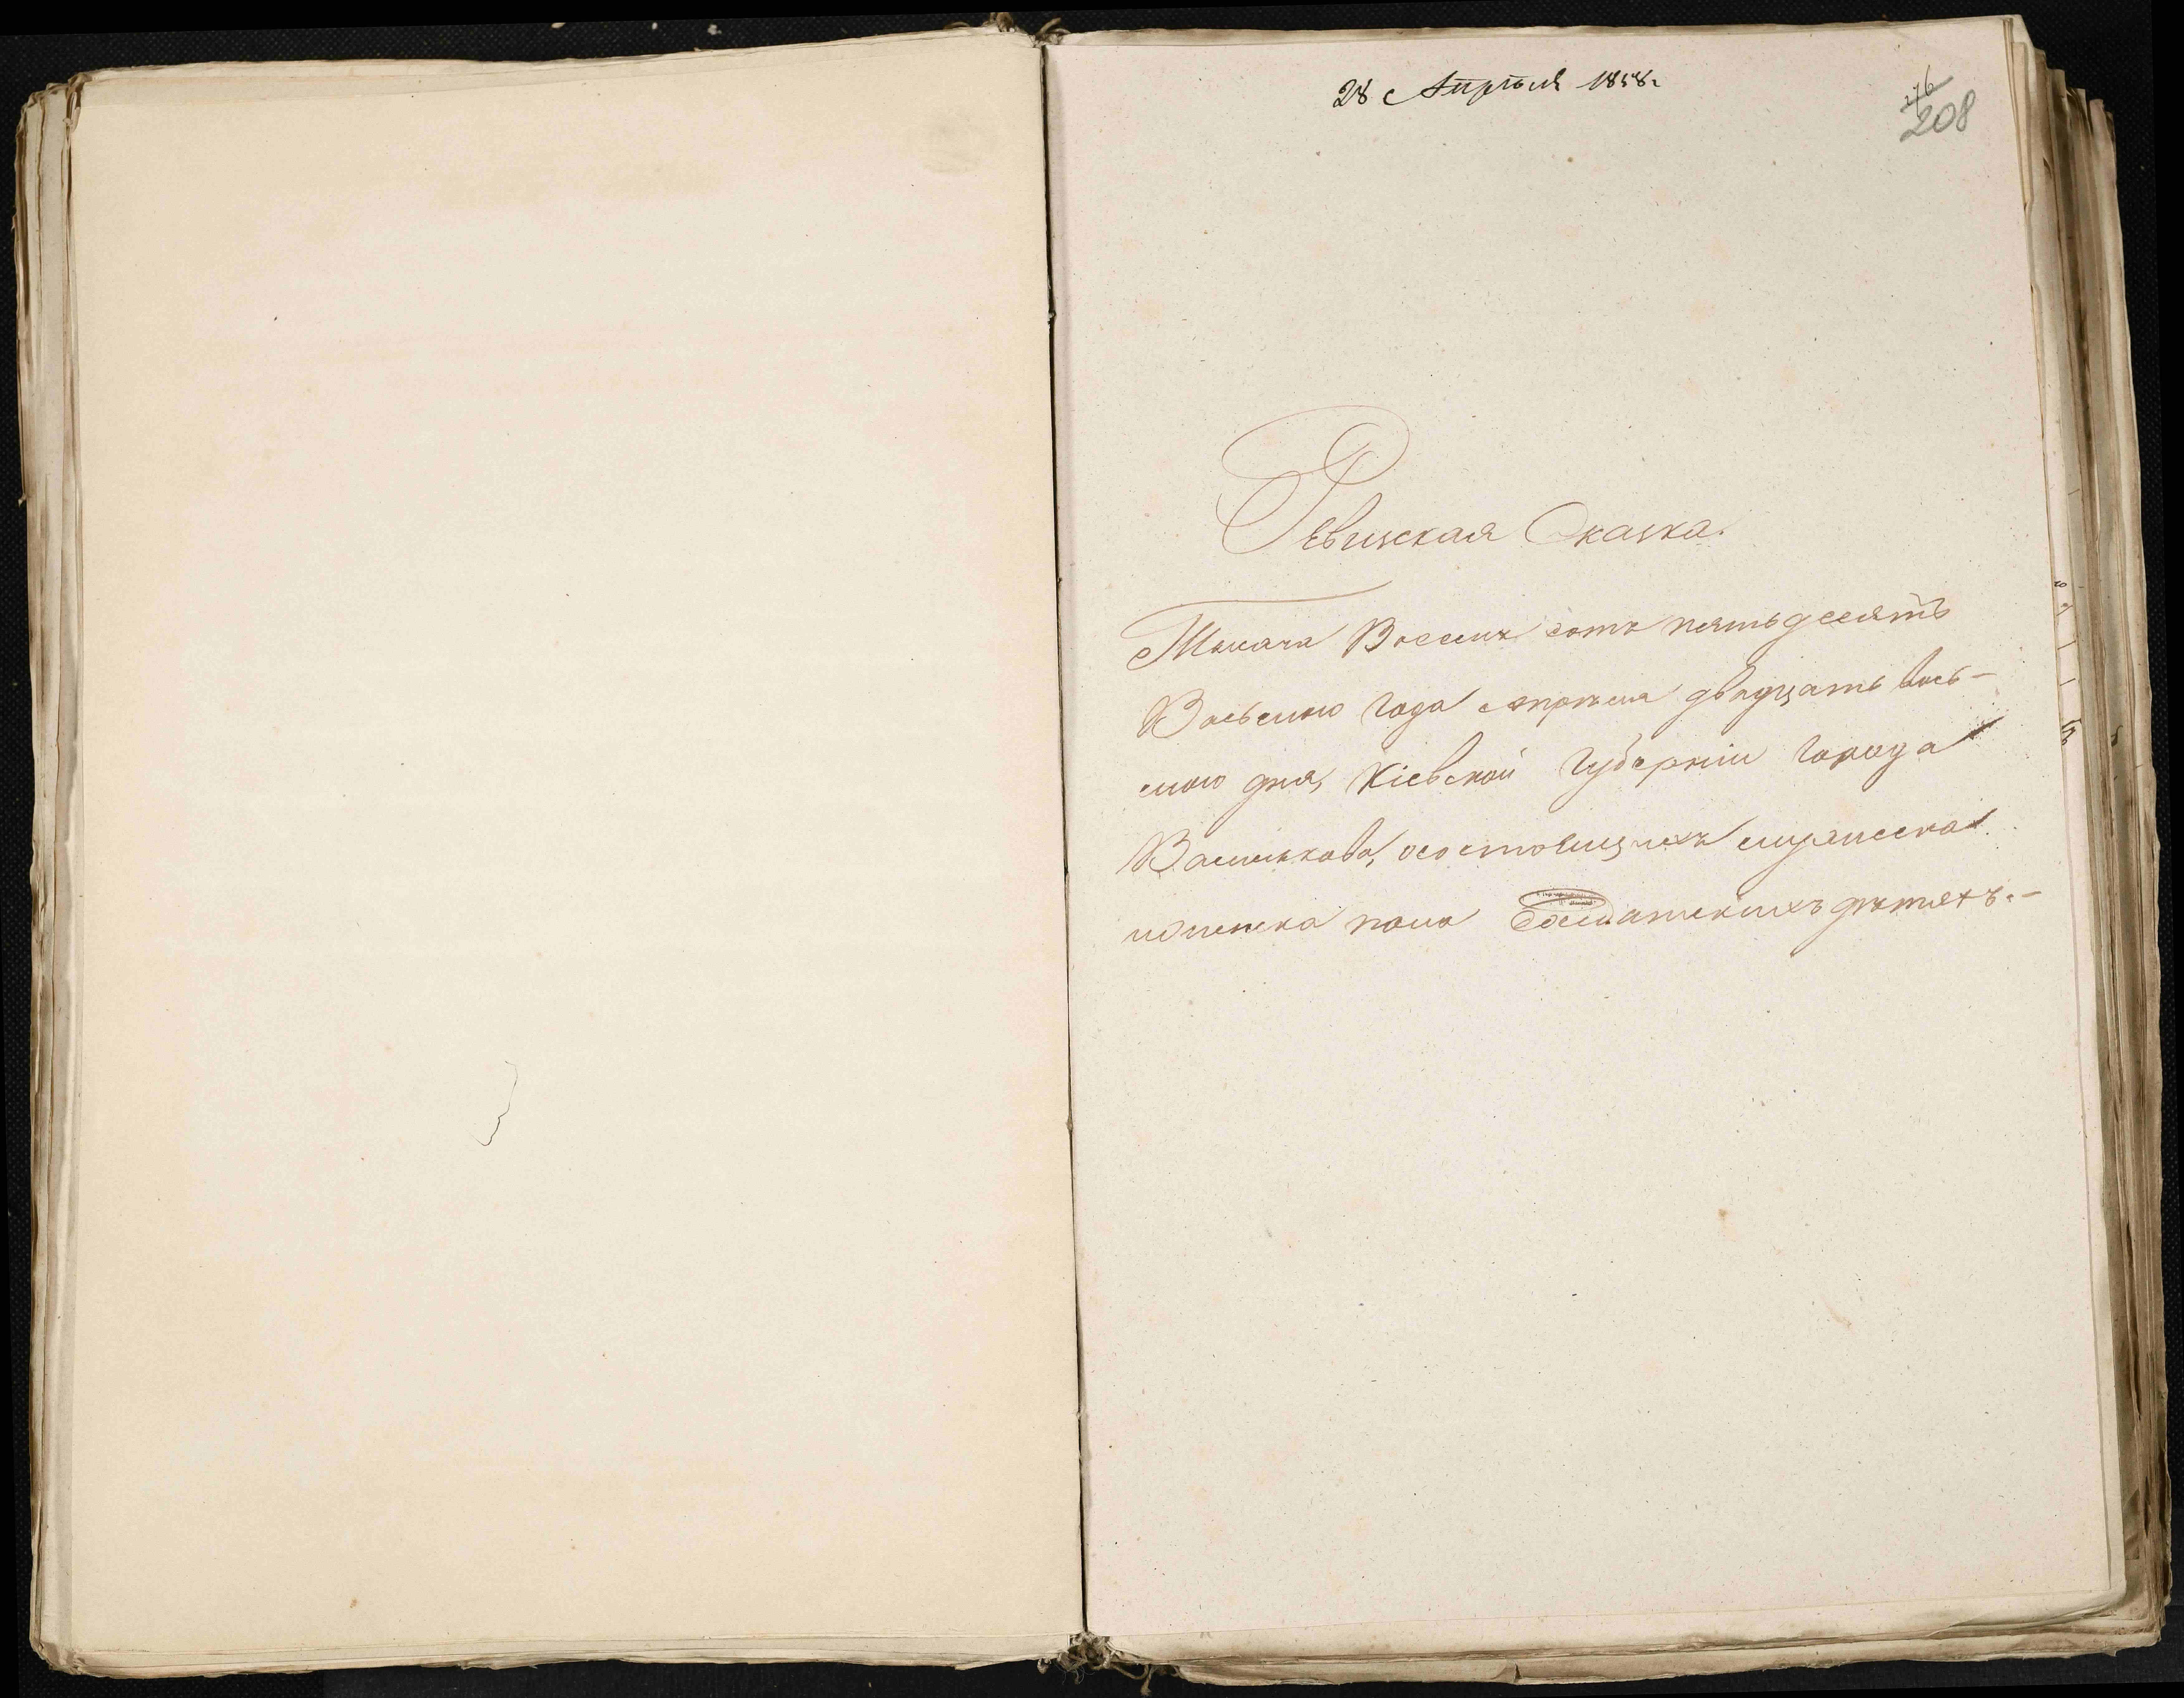 28 Апрѣля 1858 г
208
Ревизская Сказка.
Тысяча Восемь сотъ пятьдесятъ
Восьмого года апрѣля двадцать вось-
мого дня, Кіевской Губерніи Города
Василькова, о состоящихъ мужеска
и женска пола Солдатскихъ дѣтяхъ.-